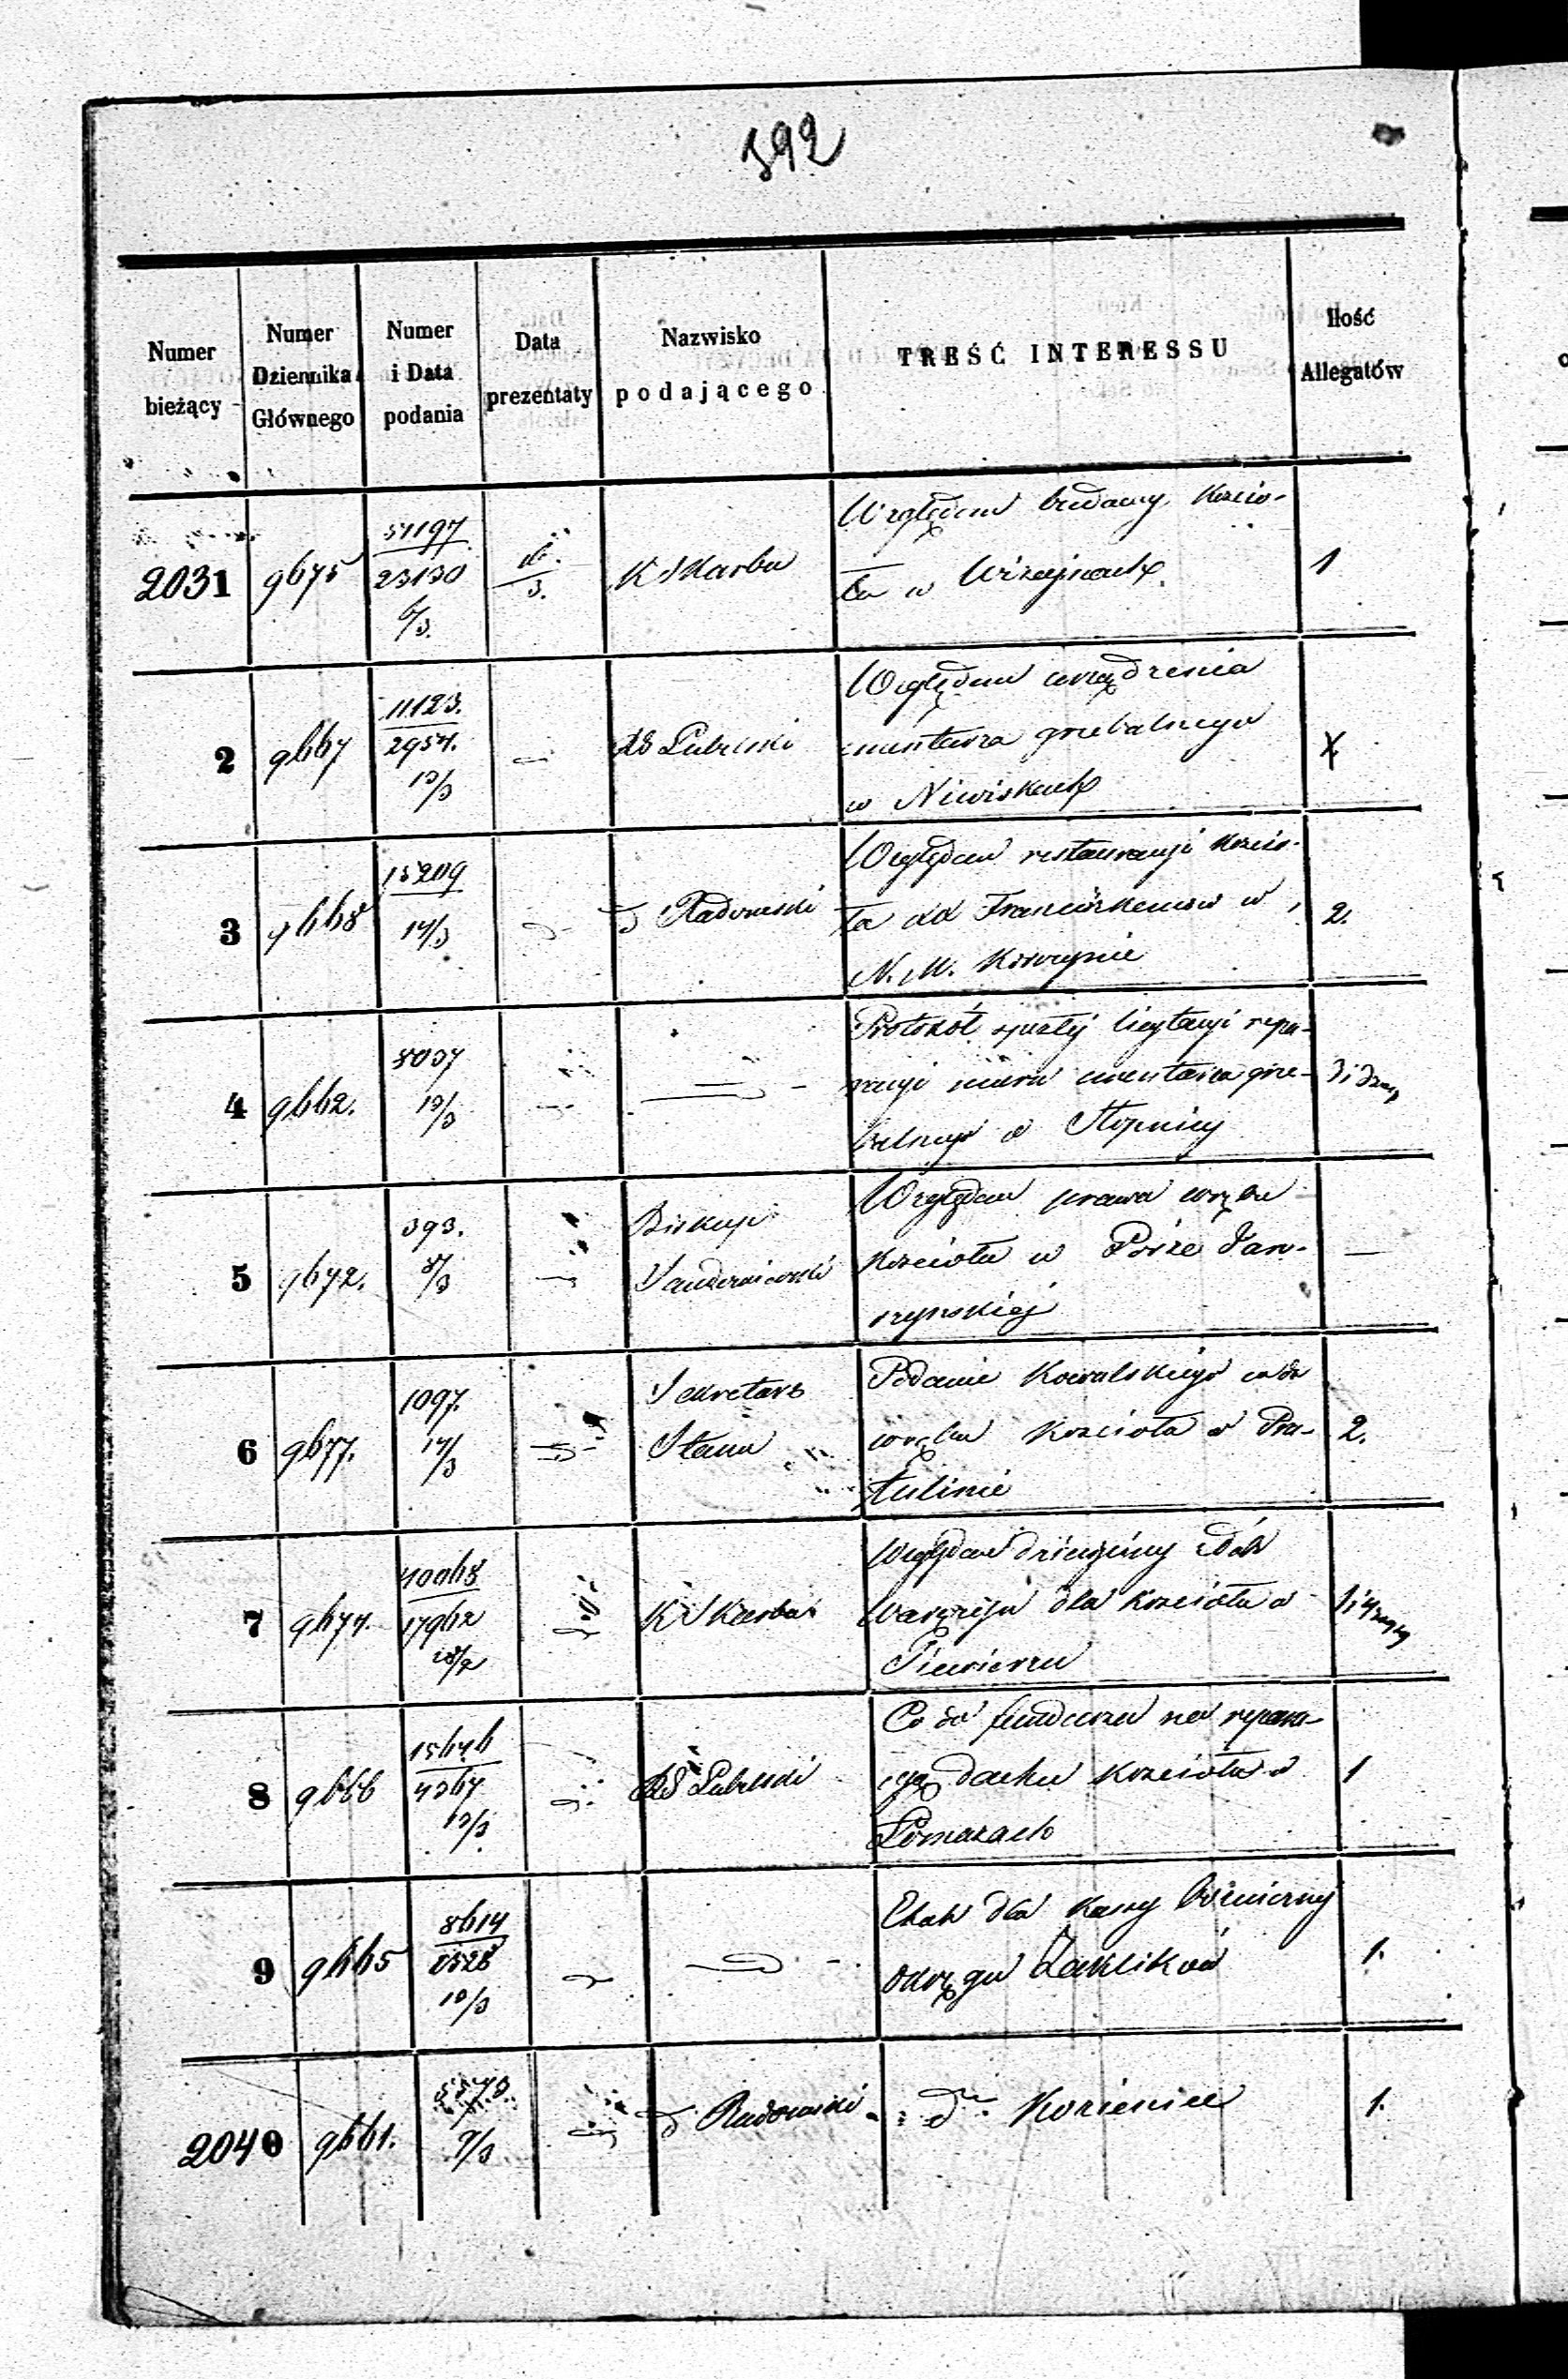 392
Numer bieżący
Numer Dziennika Głównego
Numer i Data podania
Data prezentaty
Nazwisko podającego
TREŚĆ INTERESSU
Ilość Allegatów
2031 9675 57197 23130 6/3 16/3 K Skarbu Względem budowy Kościo-
ła w Wiżajnach 1
2 9667 11123. 2957. 13/3 Względem urządzenia
cmentarza grzebalnego
w Niwiskach
3 9668 15209 14/3 Radomski Względem restauracyi Kościo-
ła XX Franciszkanów w
N. M. Korczynie 2.
4 9662. 13/3 Protokół spełzłej licytacyi repa-
racyi muru cmentarza grze-
balnego w Stopnicy
5 9672. 393. Biskup
Względem prawa wrębu
Kościoła w
6 9677. 1097. 14/3 Sekretarz
Stanu
Podanie Kowalskiego
wrębu Kościoła w Pra-
tulinie 2.
7 9674. 17962 K Skarbu Względem dziesięciny z Dóbr
dla Kościoła w
8 9666 15646 4367 13/3 Lubelski Co do funduszu na repara-
cyą dachu Kościoła w
Łomazach 1
9 9665 8614 10/3 Etat dla Kassy Bóżniczny
Okręgu Zaklików 1.
2040 9661. 9/3 Radomski Kozienice 1.